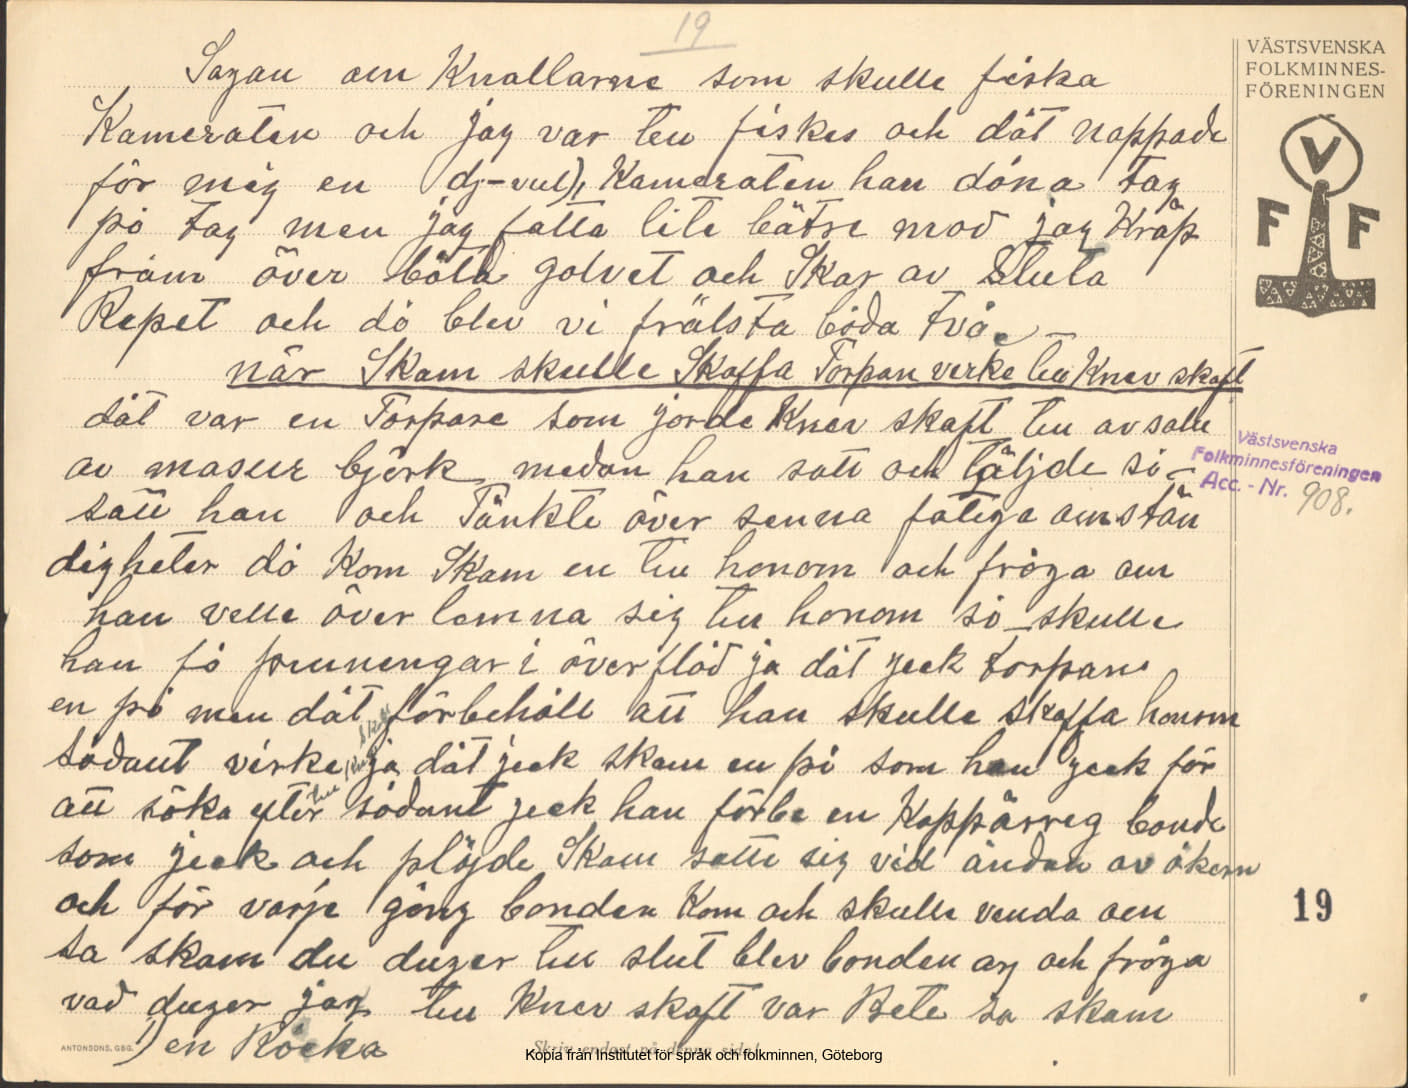 19
Sagan om Knallarne som skulle fiska
Kameraten och jag var teu fiskes och dät nappade
för mig en dj-vul), Kameraten han dóna tag
på tag men jag fatta lite bätre mod jag Kråp
fram över båta golvet och Skar av Sluta
Repet och dó blev vi frälsta bóda två.
när Skam skulle Skaffa Torpan virke teu Knev skaft
dät var en Torpare som jorde Knev skaft teu avsalu
av masur björk medan han satt och täljde só-
satt han och Tänkte över senna fatiga omstän
digheter dó Kom Skam en teu honom och fróga om
han velle över lemna sig teu honom só skulle
han fó penningar i överflöd ja dät jeck torparn
en pó men dät förbehåll att han skulle skaffa honom
sódant virke teu Knev skaft ja dät jeck skam en pó som han jeck för
att söka efter sódant jeck han förbe en Kopparreg bonde
som jeck och plöjde Skam satte sig vid ändan av åkern
och för varje góng bonden Kom och skulle venda om
sa skam du duger teu slut blev bonden arg och fróga
vad duger jag teu Knev skaft var Bete sa skam
) en Röcka
VÄSTSVENSKA
FOLKMINNES-
FÖRENINGEN
V
F F
Västsvenska
Folkminnesföreningen
Acc. - Nr. 908.
19
ANTONSONS, GBG.
Skriv endast på denna sida!
Kopia från Institutet för språk och folkminnen, Göteborg